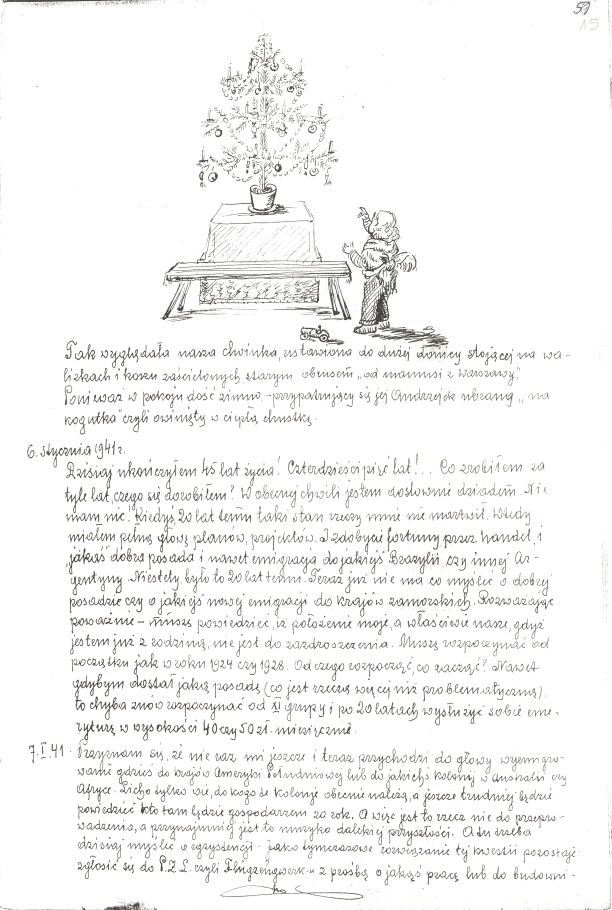 51
15
Tak wyglądała nasza choinka, wstawiona do dużej donicy stojącej na wa-
lizkach i koszu zaścielonych starym obrusem „od mamusi z Warszawy".
Ponieważ w pokoju dość zimno, - przypatrujący się jej Andrzejek ubrany „na
kogutka" czyli owinięty w ciepłą chustkę.
6. stycznia 1941 r.
Dzisiaj ukończyłem 45 lat życia! Czterdzieści pięć lat!.. Co zrobiłem za
tyle lat, czego się dorobiłem? W obecnej chwili jestem dosłownie dziadem. Nie
mam nic. Kiedyś, 20 lat temu taki stan rzeczy mnie nie martwił. Wtedy
miałem pełną głowę planów, projektów. I zdobycie fortuny przez handel, i
„jakaś" dobra posada i nawet emigracja do jakiejś Brazylii czy innej Ar-
gentyny. Niestety, było to 20 lat temu. Teraz już nie ma co myśleć o dobrej
posadzie czy o jakiejś nowej emigracji do krajów zamorskich. Rozważając
poważnie - muszę powiedzieć, iż położenie moje, a właściwie nasze, gdyż
jestem już z rodziną, nie jest do zazdroszczenia. Muszę rozpoczynać od
początku jak w roku 1924 czy 1928. Od czego rozpocząć, co zacząć? Nawet
gdybym dostał jaką posadę (co jest rzeczą więcej niż problematyczną),
to chyba znów rozpoczynać od XI grupy i po 20 latach wysłużyć sobie eme-
ryturę w wysokości 40 czy 50 zł. miesięcznie.
7.I.41. Przyznam się, że nie raz mi jeszcze i teraz przychodzi do głowy wyemigro-
wanie gdzieś do krajów Ameryki Południowej lub do jakichś kolonij w Australii czy
Afryce. Licho tylko wie, do kogo te kolonje obecnie należą, a jeszcze trudniej będzie
powiedzieć kto tam będzie gospodarzem za rok. A więc jest to rzecz nie do przepro-
wadzenia, a przynajmniej jest to muzyka dalekiej przyszłości. A tu trzeba
dzisiaj myśleć o egzystencji. Jako tymczasowe rozwiązanie tej kwestii pozostaje
zgłosić się do P.Z.L. czyli Flugzeugwerk-u z prośbą o jakąś pracę lub do budowni-